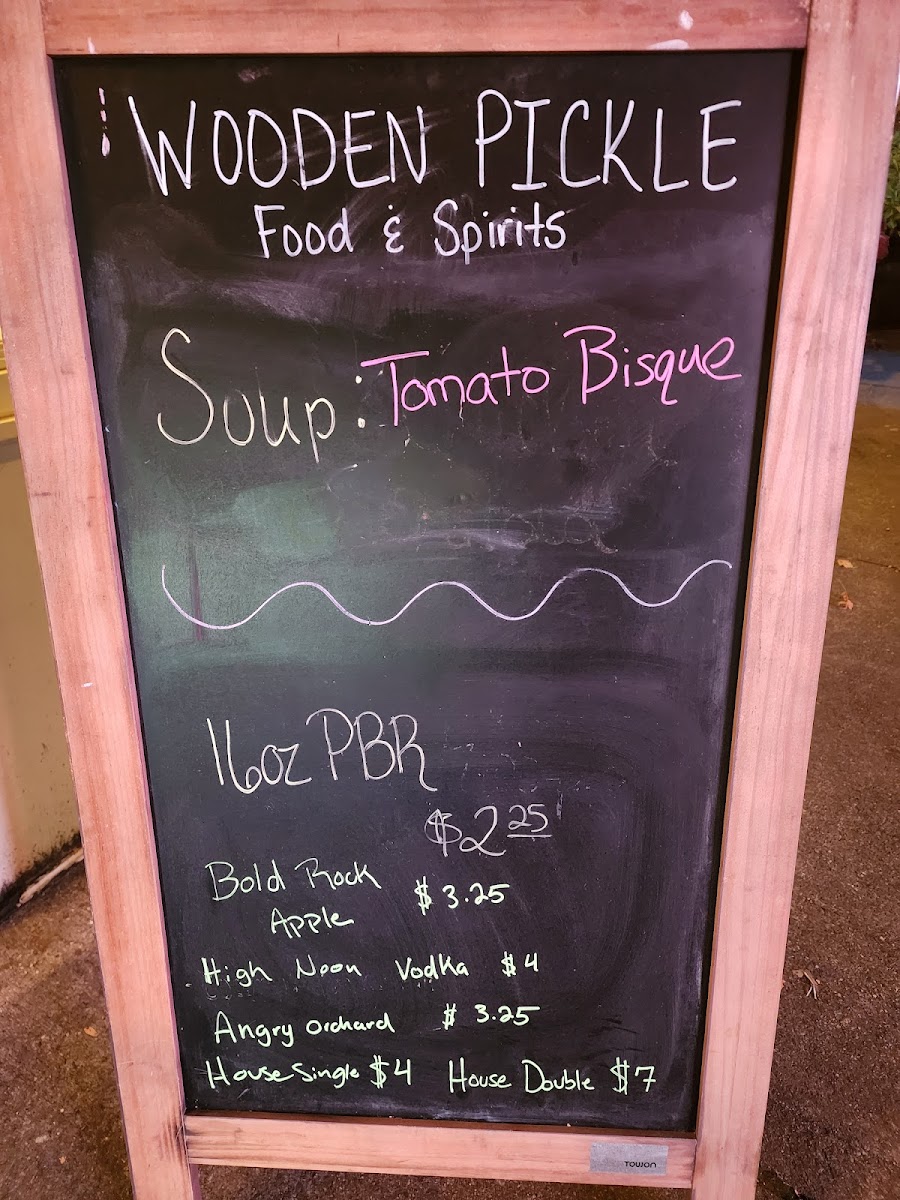 WOODEN PICKLE
Food & Spirits
Soup: Tomato Bisque
16oz PBR
$2 25
Bold Rock
Apple $3.25
High Noon Vodka $4
Angry Orchard $3.25
House Single $4 House Double $7
TOWON